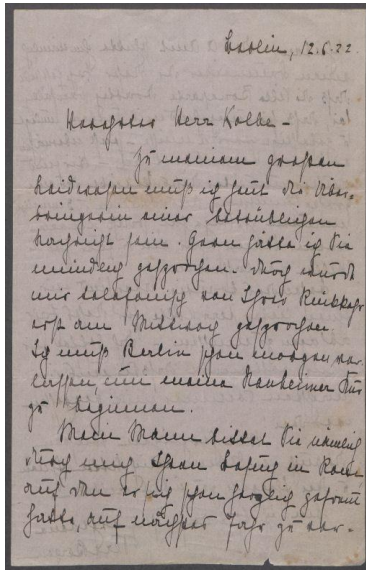 Berlin, 12.6.22.
Verehrter Herr Kolbe –
Zu meinem großen
Leidwesen muß ich heut die Über-
bringerin einer betrüblichen
Nachricht sein. Gern hätte ich Sie
mündlich gesprochen. Doch wurde
mir telefonisch von Ihrer Rückkehr
erst am Mittwoch gesprochen.
Ich muß Berlin schon morgen ver-
lassen, um meine Nauheimer Kur
zu beginnen.
Mein Mann bittet Sie nämlich
durch mich Ihren Besuch in
auf den er sich schon herzlich gefreut
hatte, auf nächstes Jahr zu ver-